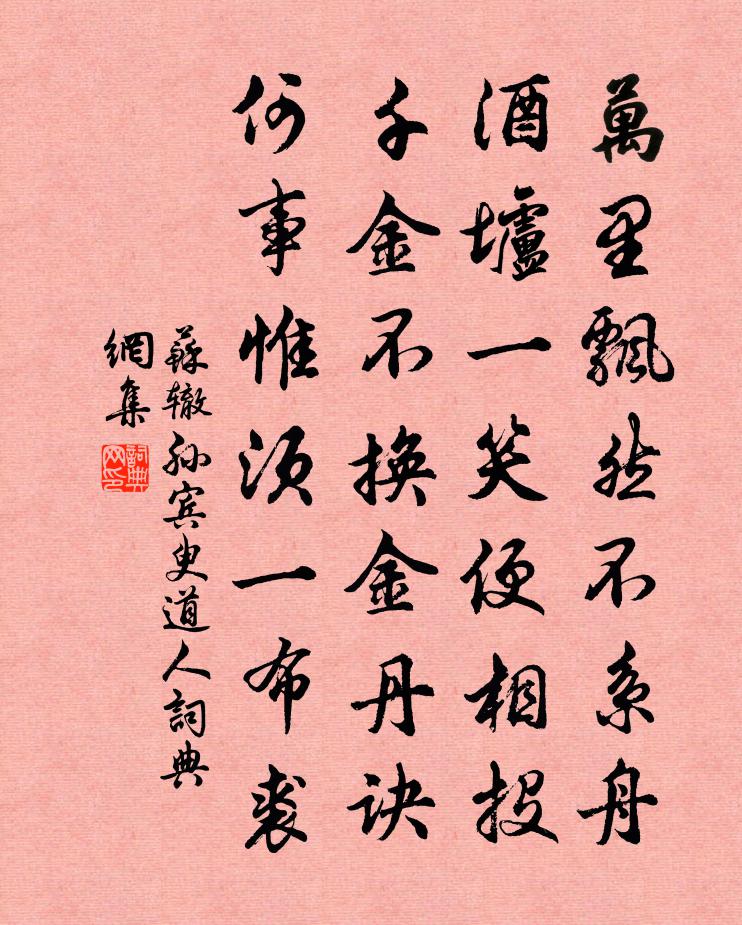 萬里飄然不系舟
酒壚一笑便相投
千金不換金丹诀
何事惟须一布裘
蘇辙孙宾叟道人詞典
網集
詞典
网印